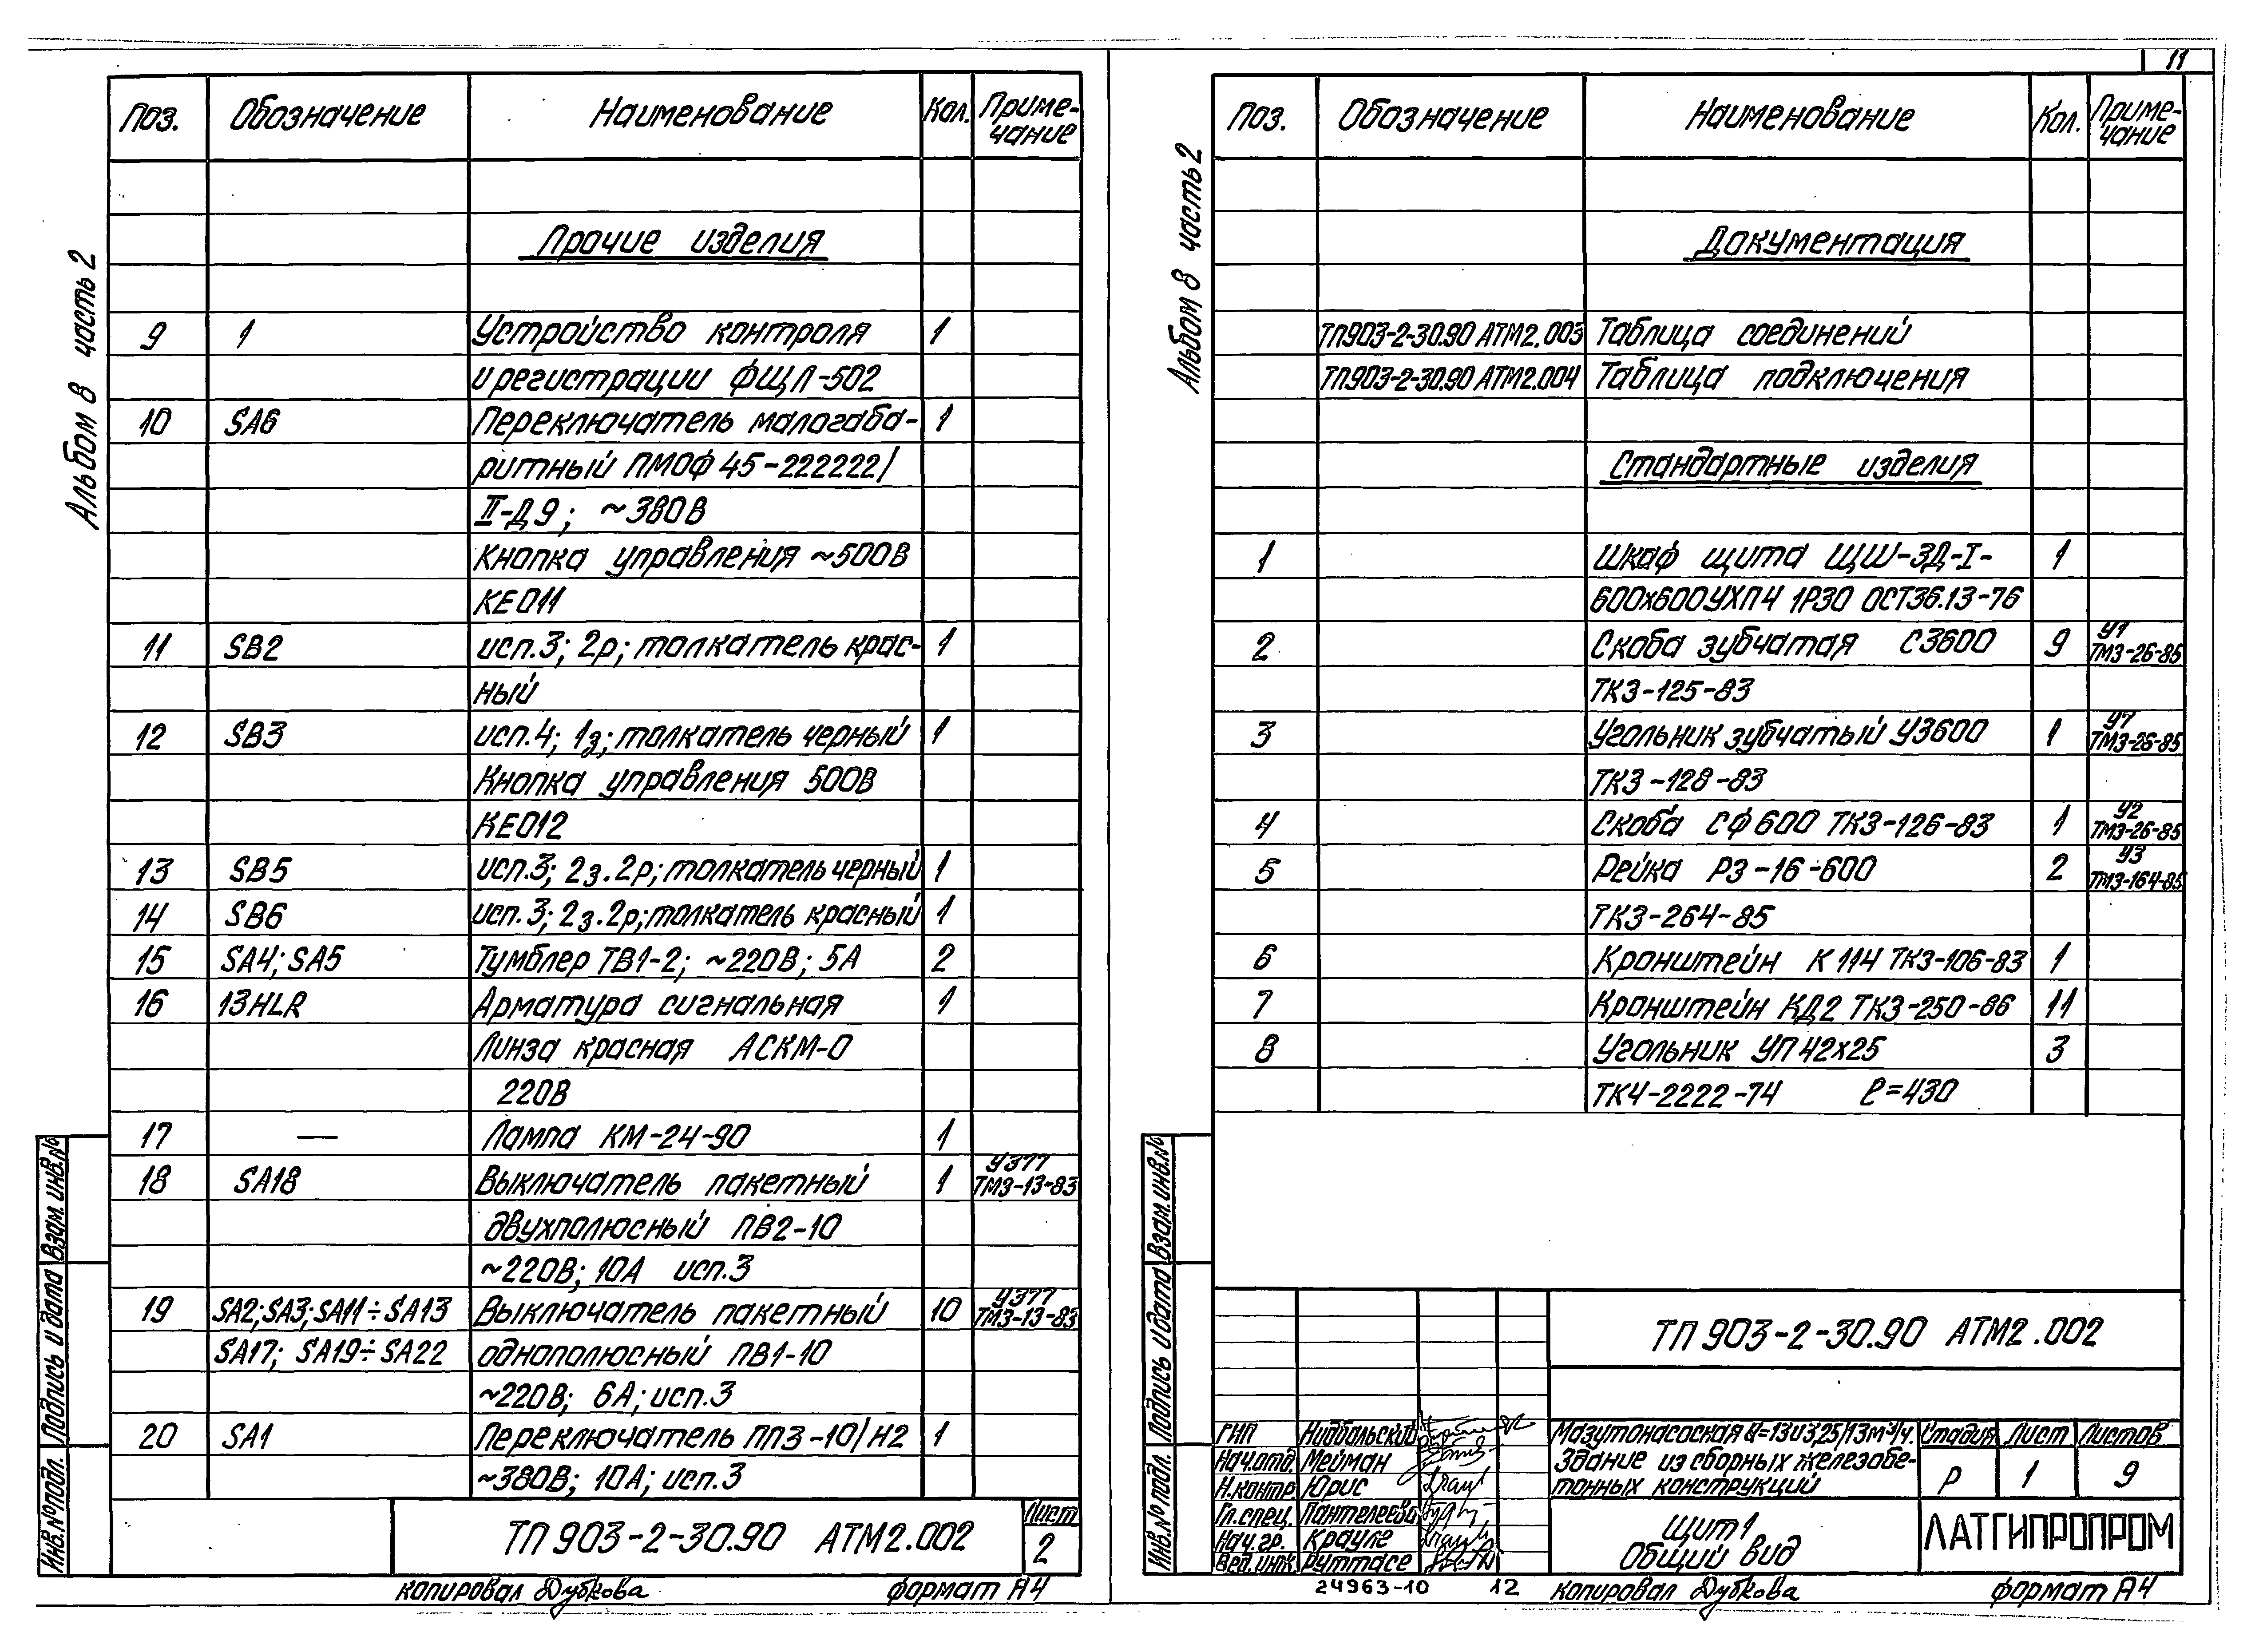 Альбом 8 часть 2
Поз. Обозначение Наименование Кол. Приме-
чание
Прочие изделия
9 1 Устройство контроля 1
и регистрации ФЩЛ-502
10 SA6 Переключатель малогаба- 1
ритный ПМОФ 45-222222/
II-Д9; ~380В
Кнопка управления ~500В
КЕ011
11 SB2 исп.3; 2р; толкатель крас- 1
ный
12 SB3 исп.4; 1з; толкатель черный 1
Кнопка управления 500В
КЕ012
13 SB5 исп.3; 2з.2р; толкатель черный 1
14 SB6 исп.3; 2з.2р; толкатель красный 1
15 SA4; SA5 Тумблер ТВ1-2; ~220В; 5А 2
16 13HLR Арматура сигнальная 1
Линза красная АСКМ-0
220В
17 — Лампа КМ-24-90 1
18 SA18 Выключатель пакетный 1 У377
ТМ3-13-83
двухполюсный ПВ2-10
~220В; 10А исп.3
19 SA2; SA3; SA11÷SA13 Выключатель пакетный 10 У377
ТМ3-13-83
SA17; SA19÷SA22 однополюсный ПВ1-10
~220В; 6А; исп.3
20 SA1 Переключатель ПП3-10/Н2 1
~380В; 10А; исп.3
Взам. инв.№
Подпись и дата
Инв.№ подл.
ТП 903-2-30.90 АТМ2.002
Лист
2
копировал Дубкова формат А4
11
Альбом 8 часть 2
Поз. Обозначение Наименование Кол. Приме-
чание
Документация
ТП903-2-30.90 АТМ2.003 Таблица соединений
ТП903-2-30.90 АТМ2.004 Таблица подключения
Стандартные изделия
1 Шкаф щита ЩШ-ЗД-I- 1
600х600УХЛ4 1Р30 ОСТ36.13-76
2 Скоба зубчатая СЗ600 9 У1
ТМ3-26-85
ТК3-125-83
3 Угольник зубчатый УЗ600 1 У7
ТМ3-26-85
ТК3-128-83
4 Скоба СФ600 ТК3-126-83 1 У2
ТМ3-26-85
5 Рейка РЗ-16-600 2 У3
ТМ3-164-85
ТК3-264-85
6 Кронштейн К114 ТК3-106-83 1
7 Кронштейн КД2 ТК3-250-86 11
8 Угольник УП42х25 3
ТК4-2222-74 ℓ=430
Взам. инв.№
Подпись и дата
Инв.№ подл.
ТП 903-2-30.90 АТМ2.002
ГИП Нидбальский
Нач.отд. Мейман
Н.контр. Юрис
Гл.спец. Пантелеева
Нач.гр. Крауле
Вед.инж. Руттасе
Мазутонасосная Q=13и3,25/13м³/ч.
Здание из сборных железобе-
тонных конструкций
Стадия Лист Листов
Р 1 9
Щит 1
Общий вид
ЛАТГИПРОПРОМ
24963-10 12 копировал Дубкова формат А4